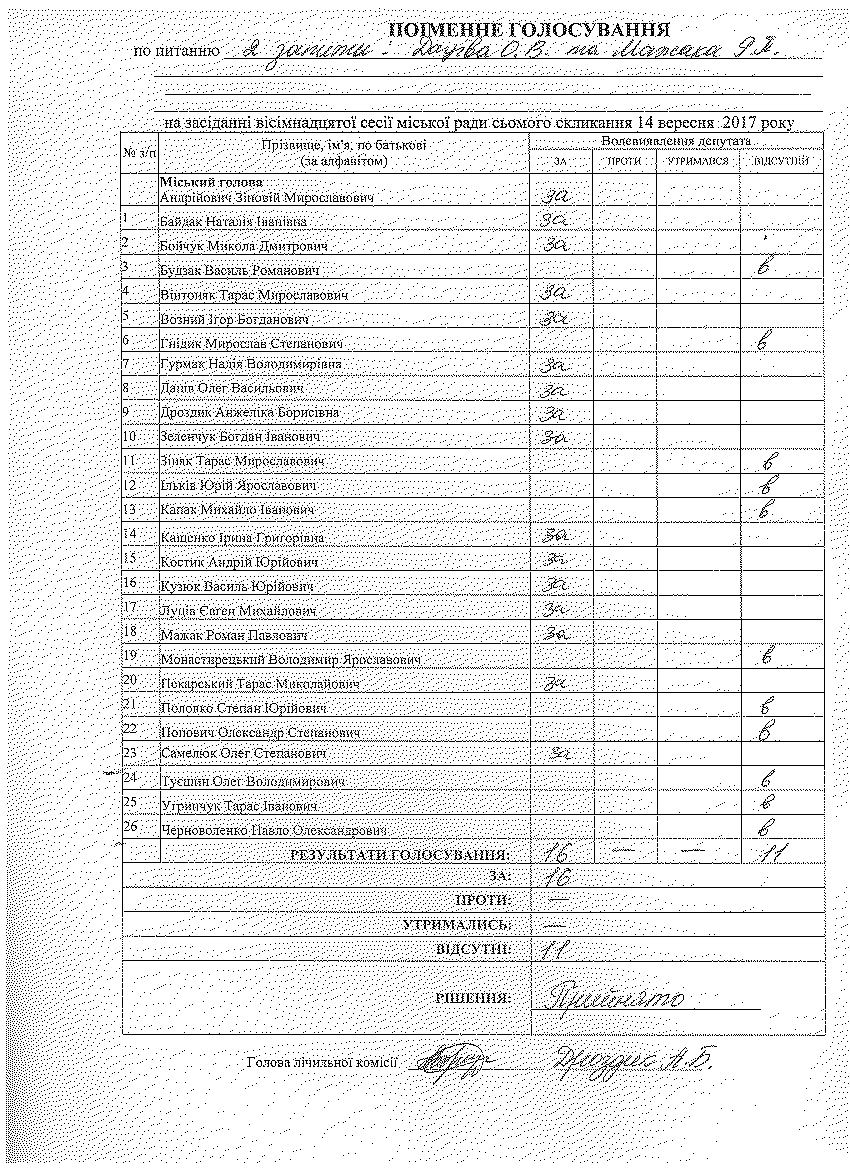 ПОІМЕННЕ ГОЛОСУВАННЯ
по питанню 2 запити - Даніва О.В. та Мажака Р.П.
на засіданні вісімнадцятої сесії міської ради сьомого скликання 14 вересня 2017 року
№ з/п Прізвище, ім'я, по батькові (за алфавітом) Волевиявлення депутата
ЗА ПРОТИ УТРИМАВСЯ ВІДСУТНІЙ
Міський голова
Андрійович Зіновій Мирославович за
1 Байдак Наталія Іванівна за
2 Бойчук Микола Дмитрович за
3 Будзак Василь Романович в
4 Вінтоняк Тарас Мирославович за
5 Возний Ігор Богданович за
6 Гнідик Мирослав Степанович в
7 Гурмак Надія Володимирівна за
8 Данів Олег Васильович за
9 Дроздик Анжеліка Борисівна за
10 Зеленчук Богдан Іванович за
11 Зіняк Тарас Мирославович в
12 Ільків Юрій Ярославович в
13 Капак Михайло Іванович в
14 Кащенко Ірина Григорівна за
15 Костик Андрій Юрійович за
16 Кузюк Василь Юрійович за
17 Луців Євген Михайлович за
18 Мажак Роман Павлович за
19 Монастирецький Володимир Ярославович в
20 Покарський Тарас Миколайович за
21 Половко Степан Юрійович в
22 Попович Олександр Степанович в
23 Самелюк Олег Степанович за
24 Туєшин Олег Володимирович в
25 Угринчук Тарас Іванович в
26 Черноволенко Павло Олександрович в
РЕЗУЛЬТАТИ ГОЛОСУВАННЯ: 16 — — 11
ЗА: 16
ПРОТИ: —
УТРИМАЛИСЬ: —
ВІДСУТНІ: 11
РІШЕННЯ: Прийнято
Голова лічильної комісії Дроздик А.Б.